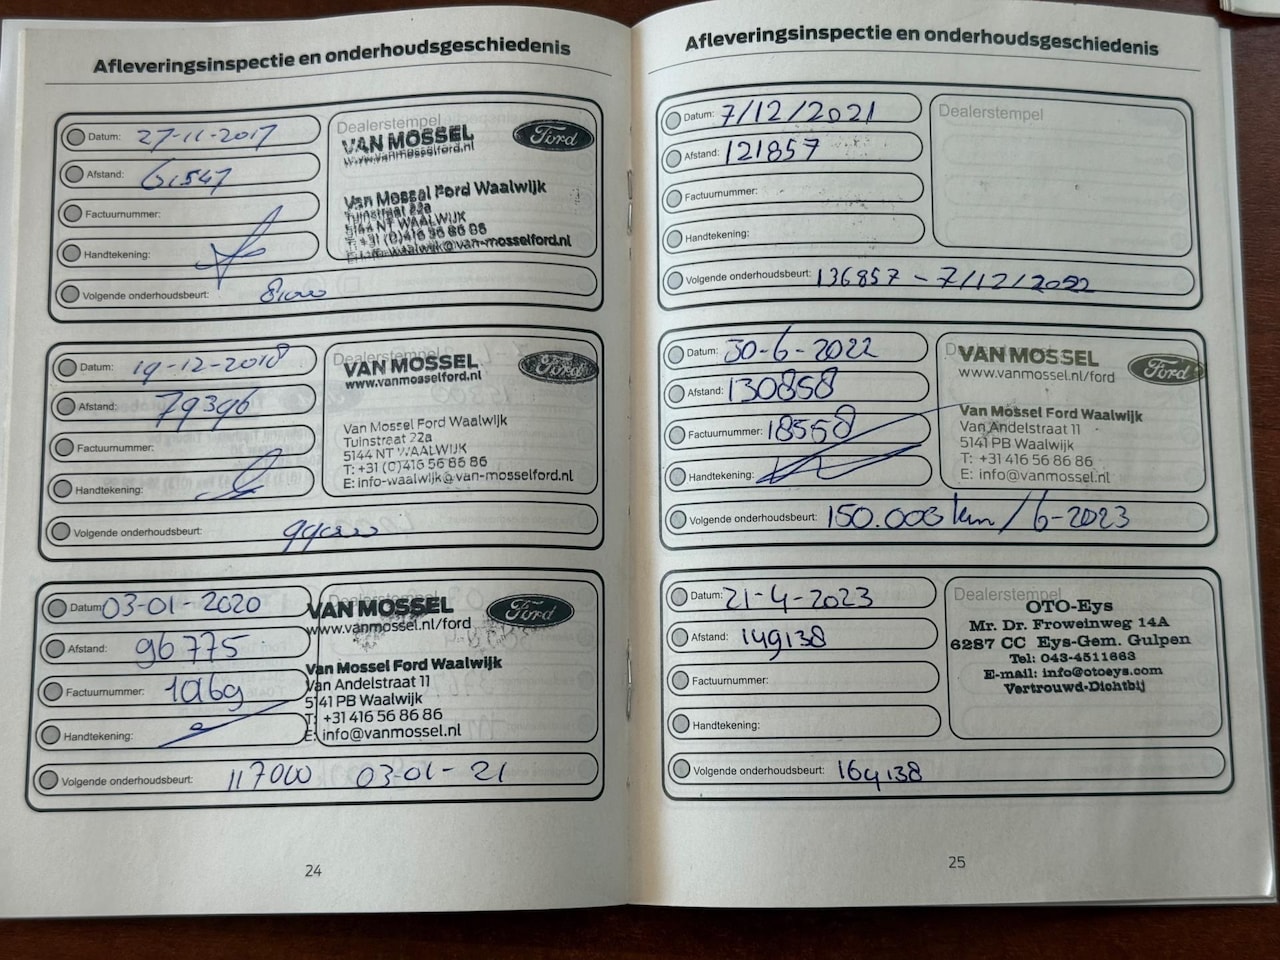 Afleveringsinspectie en onderhoudsgeschiedenis
Datum: 27-11-2017
Afstand: 61547
Factuurnummer:
Handtekening:
Volgende onderhoudsbeurt: 81000
Dealerstempel
VAN MOSSEL
www.vanmosselford.nl
Ford
Van Mossel Ford Waalwijk
Tuinstraat 22a
5144 NT WAALWIJK
T: +31 (0)416 56 86 86
E: info-waalwijk@van-mosselford.nl
Datum: 19-12-2018
Afstand: 79396
Factuurnummer:
Handtekening:
Volgende onderhoudsbeurt: 99000
Dealerstempel
VAN MOSSEL
www.vanmosselford.nl
Ford
Van Mossel Ford Waalwijk
Tuinstraat 22a
5144 NT WAALWIJK
T: +31 (0)416 56 86 86
E: info-waalwijk@van-mosselford.nl
Datum: 03-01-2020
Afstand: 96775
Factuurnummer:
Handtekening:
Volgende onderhoudsbeurt: 117000 03-01-21
Dealerstempel
VAN MOSSEL
www.vanmossel.nl/ford
Ford
Van Mossel Ford Waalwijk
Van Andelstraat 11
5141 PB Waalwijk
T: +31 416 56 86 86
E: info@vanmossel.nl
24
Afleveringsinspectie en onderhoudsgeschiedenis
Datum: 7/12/2021
Afstand: 121857
Factuurnummer:
Handtekening:
Volgende onderhoudsbeurt: 136857 - 7/12/2022
Dealerstempel
Datum: 30-6-2022
Afstand: 130858
Factuurnummer: 18558
Handtekening:
Volgende onderhoudsbeurt: 150.000 km / 6-2023
Dealerstempel
VAN MOSSEL
www.vanmossel.nl/ford
Ford
Van Mossel Ford Waalwijk
Van Andelstraat 11
5141 PB Waalwijk
T: +31 416 56 86 86
E: info@vanmossel.nl
Datum: 21-4-2023
Afstand: 149138
Factuurnummer:
Handtekening:
Volgende onderhoudsbeurt: 164138
Dealerstempel
OTO-Eys
Mr. Dr. Froweinweg 14A
6287 CC Eys-Gem. Gulpen
Tel: 043-4511663
E-mail: info@otoeys.com
Vertrouwd-Dichtbij
25